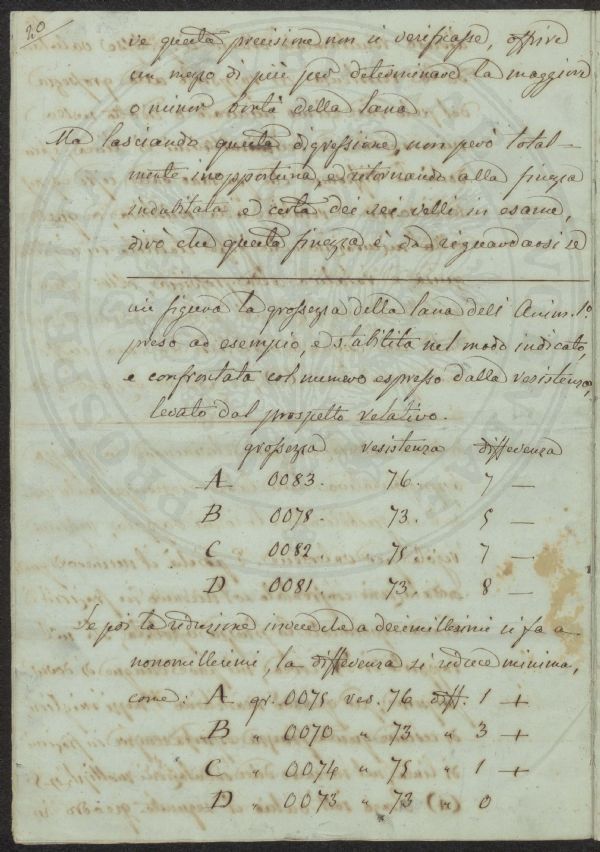 20
se questa precisione non si verificasse, offrire
un mezzo di più per determinare la maggiore
o minor bontà della lana
Ma lasciando questa digressione, non però total-
mente inopportuna, e ritornando alla finezza
indubitata e certa dei sei velli in esame,
dirò che questa finezza è da riguardarsi se
mi figura la grossezza della lana dell' Anim. 1º
preso ad esempio, e stabilita nel modo indicato,
e confrontata col numero espresso dalla resistenza,
levato dal prospetto relativo.
grossezza resistenza differenza
A 0083. 76. 7 —
B 0078. 73. 5 —
C 0082 75 7 —
D 0081 73. 8 —
Se poi la riduzione invece che a decimillesimi si fa a
nonomillesimi, la differenza si riduce minima,
come: A gr. 0075 res. 76 diff. 1 +
B " 0070 " 73 " 3 +
C " 0074 " 75 " 1 +
D " 0073 " 73 " 0